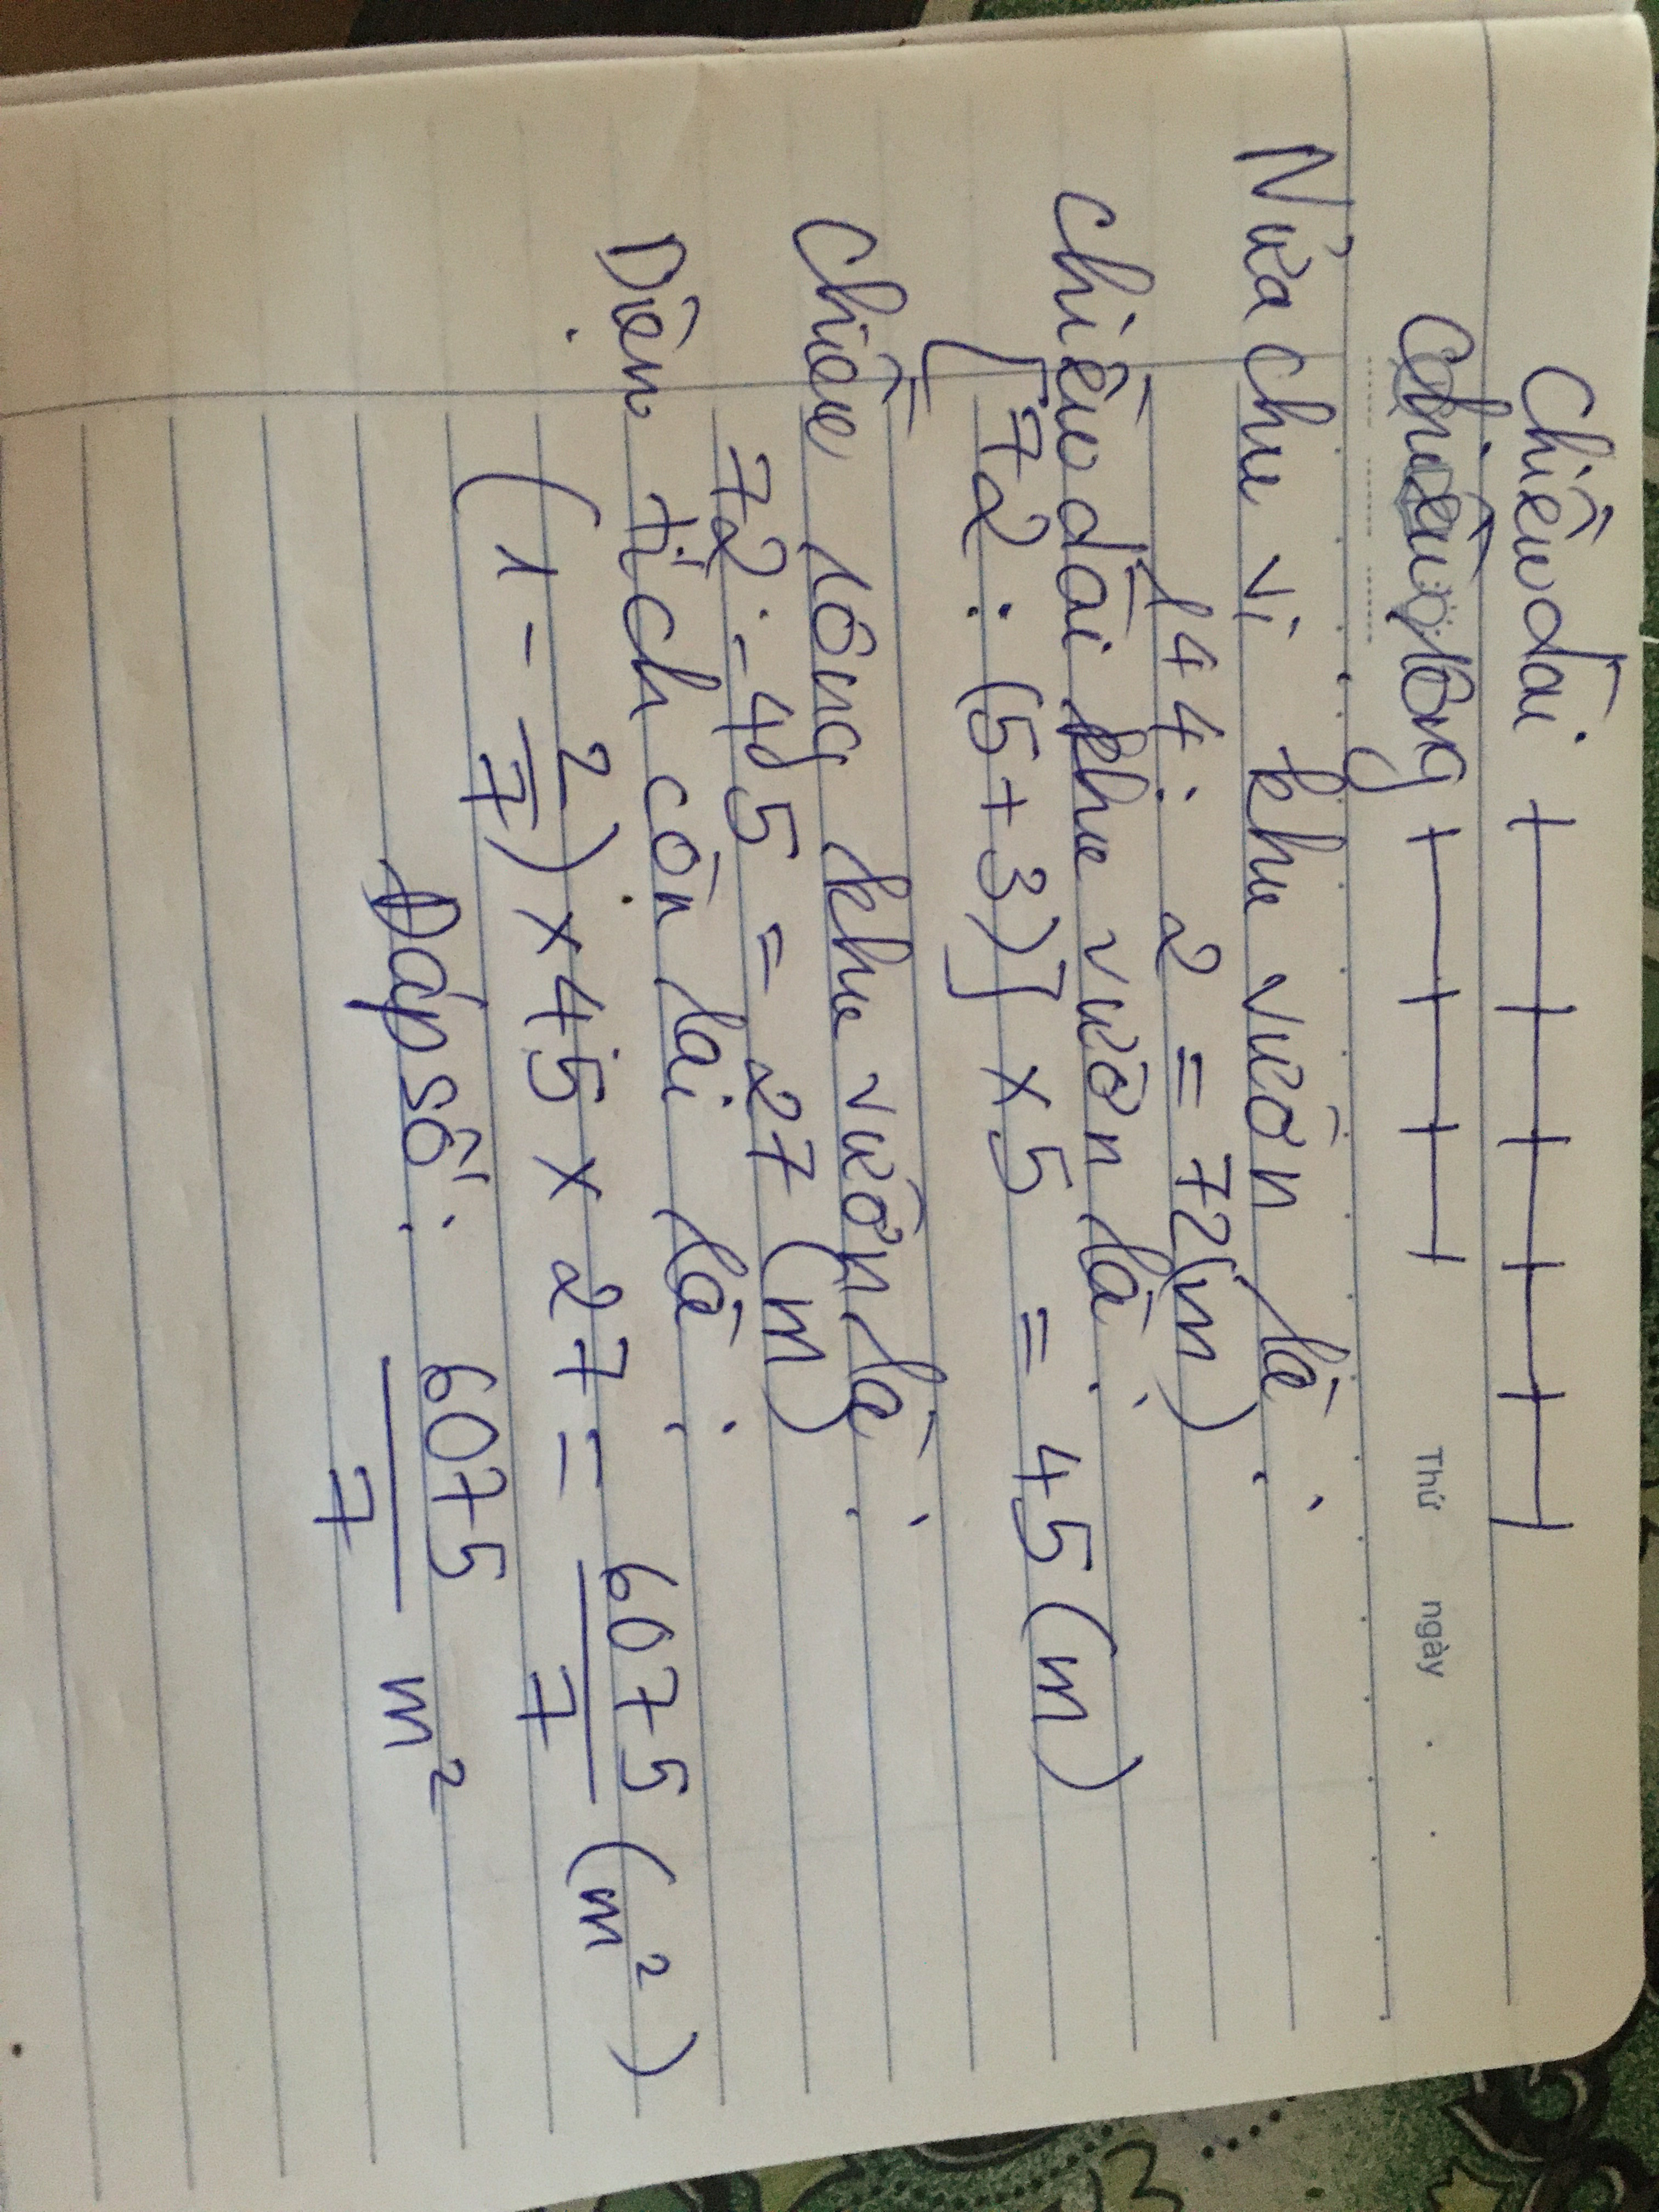 Chiều dài
Thứ ngày
Chiều rộng
Nửa chu vi khu vườn là:
144 : 2 = 72(m)
Chiều dài khu vườn là:
[72 : (5+3)] x 5 = 45 (m)
Chiều rộng khu vườn là:
72 - 45 = 27 (m)
Diện tích còn lại là:
(1 - 2/7) x 45 x 27 = 6075/7 (m²)
Đáp số: 6075/7 m²